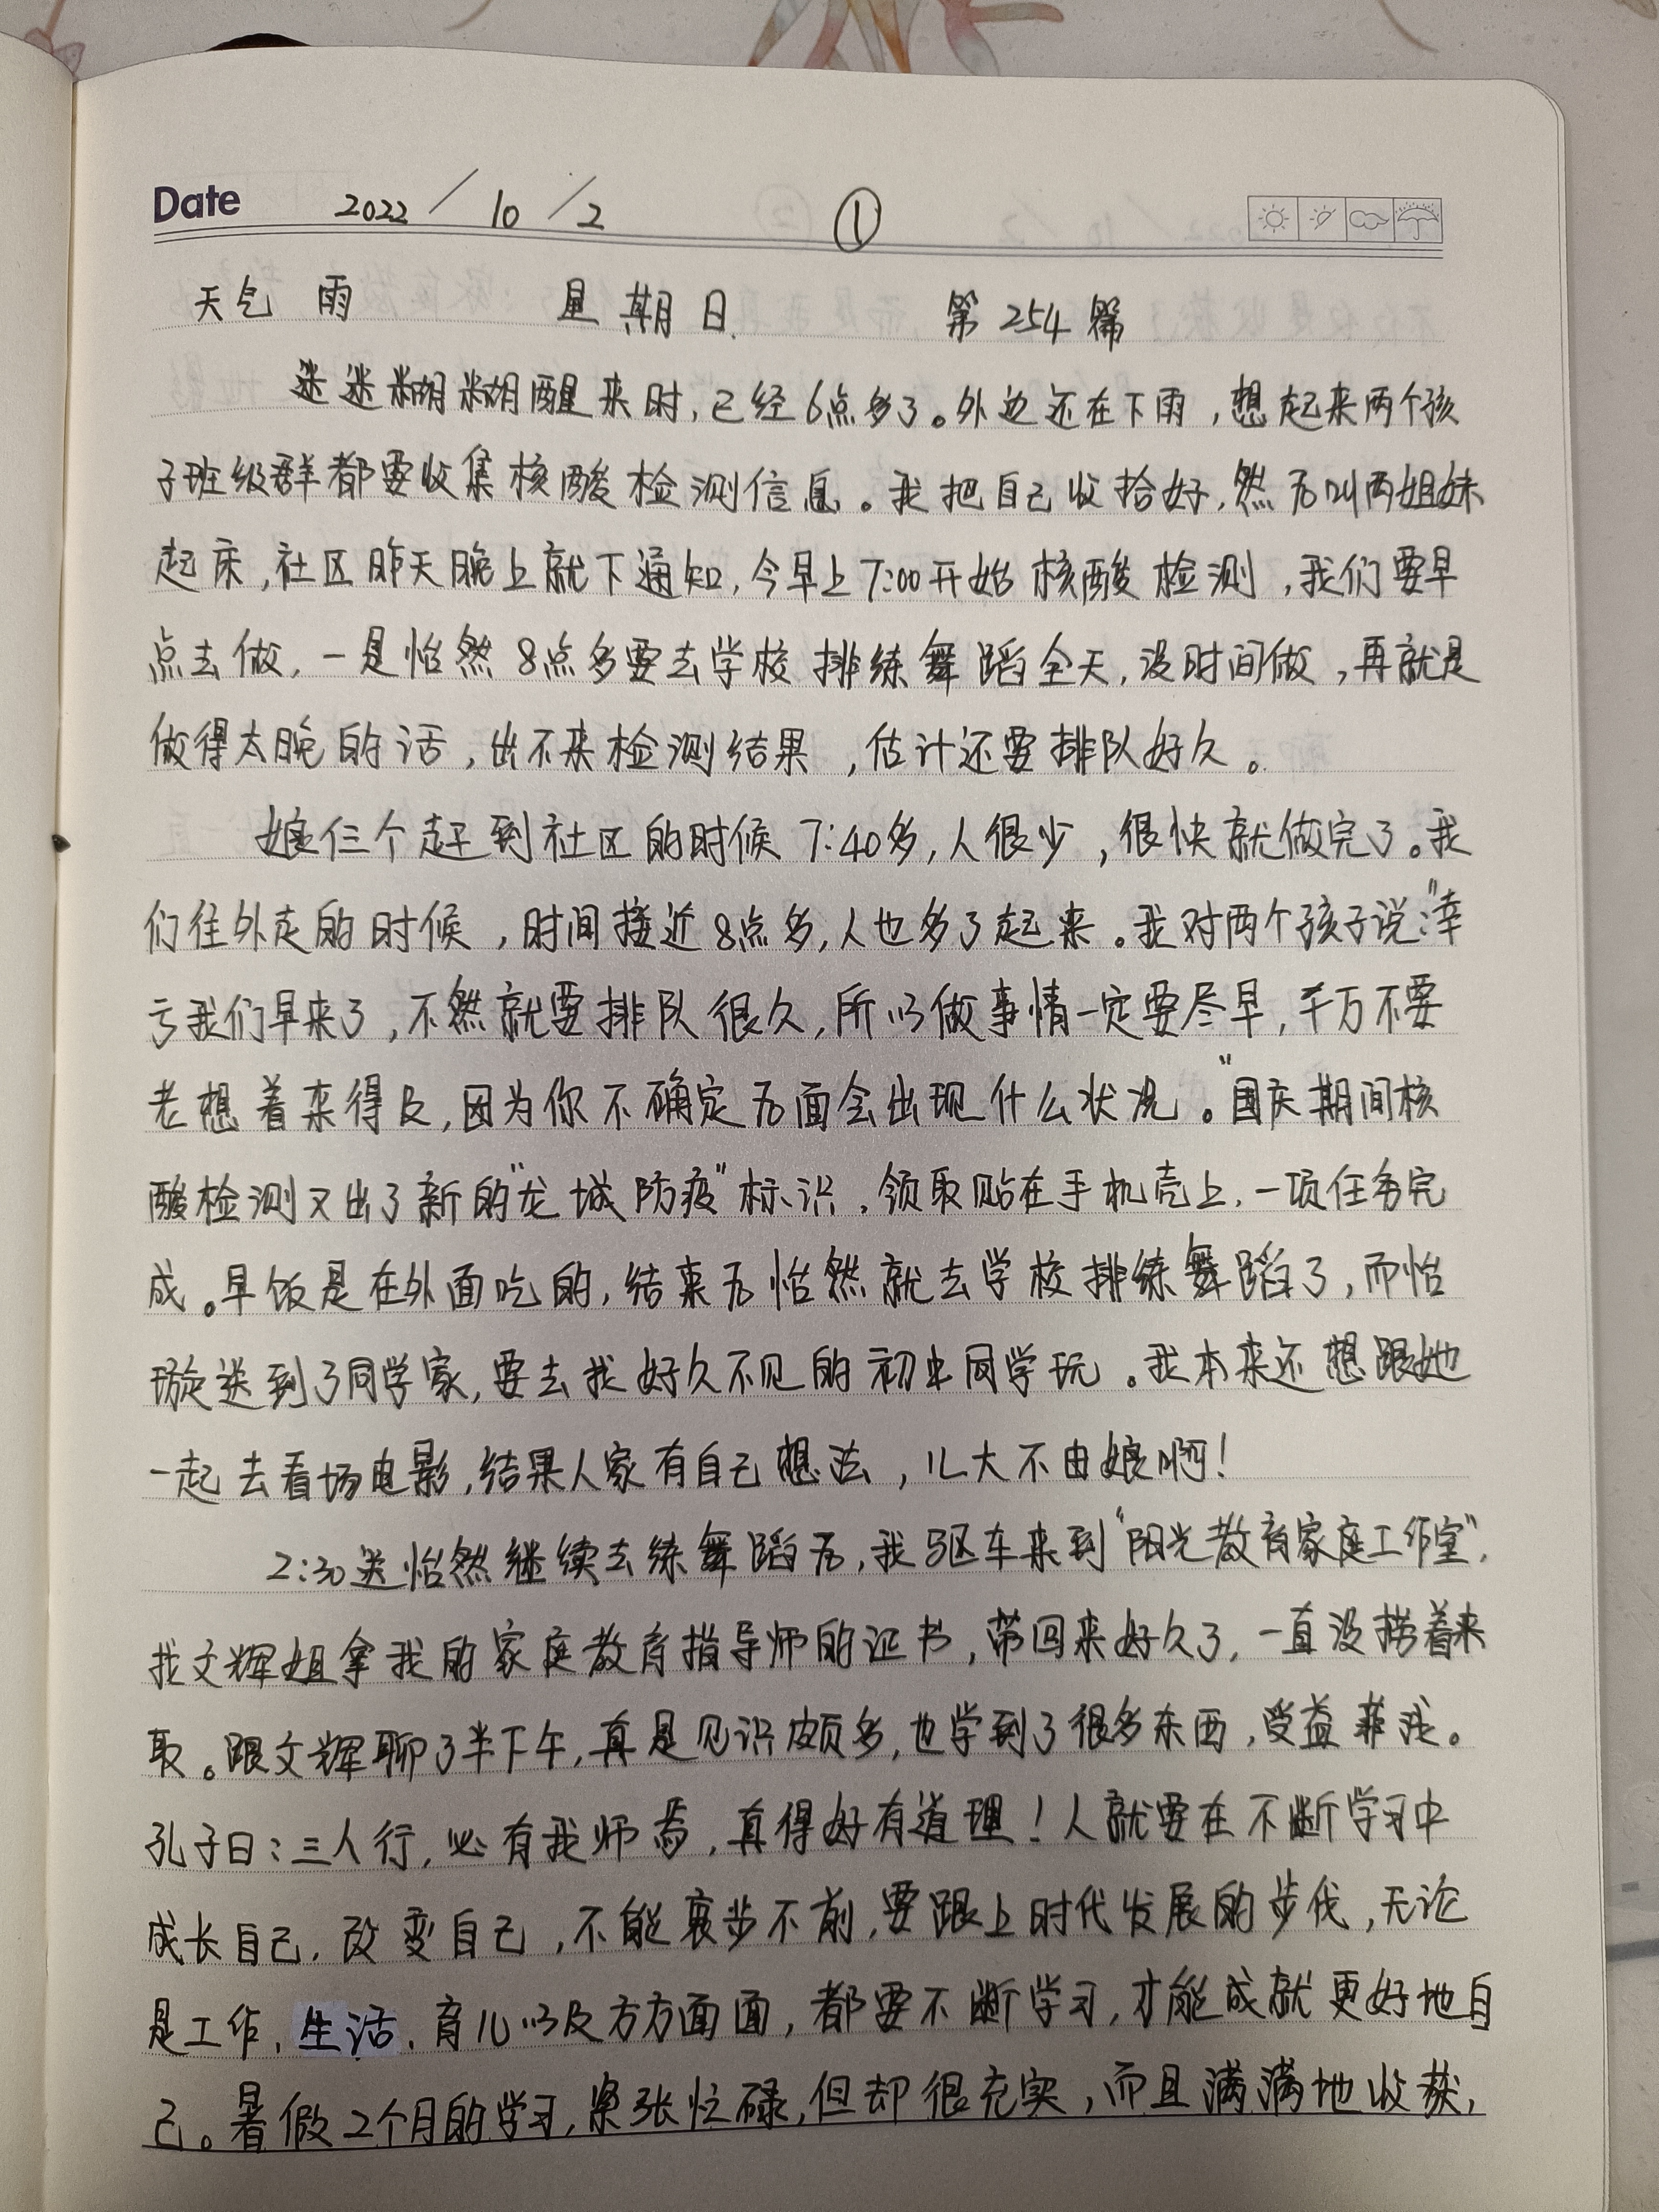 Date 2022/10/2 ①
天气 雨 星期日 第254篇
迷迷糊糊醒来时,已经6点多了。外边还在下雨,想起来两个孩
子班级群都要收集核酸检测信息。我把自己收拾好,然后叫两姐妹
起床,社区昨天晚上就下通知,今早上7:00开始核酸检测,我们要早
点去做,一是怡然8点多要去学校排练舞蹈全天,没时间做,再就是
做得太晚的话,出不来检测结果,估计还要排队好久。
娘仨个赶到社区的时候7:40多,人很少,很快就做完了。我
们往外走的时候,时间接近8点多,人也多了起来。我对两个孩子说:“幸
亏我们早来了,不然就要排队很久,所以做事情一定要尽早,千万不要
老想着来得及,因为你不确定后面会出现什么状况。”国庆期间核
酸检测又出了新的“龙城防疫”标识,领取贴在手机壳上,一项任务完
成。早饭是在外面吃的,结束后怡然就去学校排练舞蹈了,而怡
璇送到了同学家,要去找好久不见的初中同学玩。我本来还想跟她
一起去看场电影,结果人家有自己想法,儿大不由娘啊!
2:30送怡然继续去练舞蹈后,我驱车来到“阳光教育家庭工作室”,
找文辉姐拿我的家庭教育指导师的证书,带回来好久了,一直没捞着来
取。跟文辉聊了半下午,真是见识颇多,也学到了很多东西,受益菲浅。
孔子曰:三人行,必有我师焉,真得好有道理!人就要在不断学习中
成长自己,改变自己,不能裹步不前,要跟上时代发展的步伐,无论
是工作,生活,育儿以及方方面面,都要不断学习,才能成就更好地自
己。暑假2个月的学习,紧张忙碌,但却很充实,而且满满地收获,